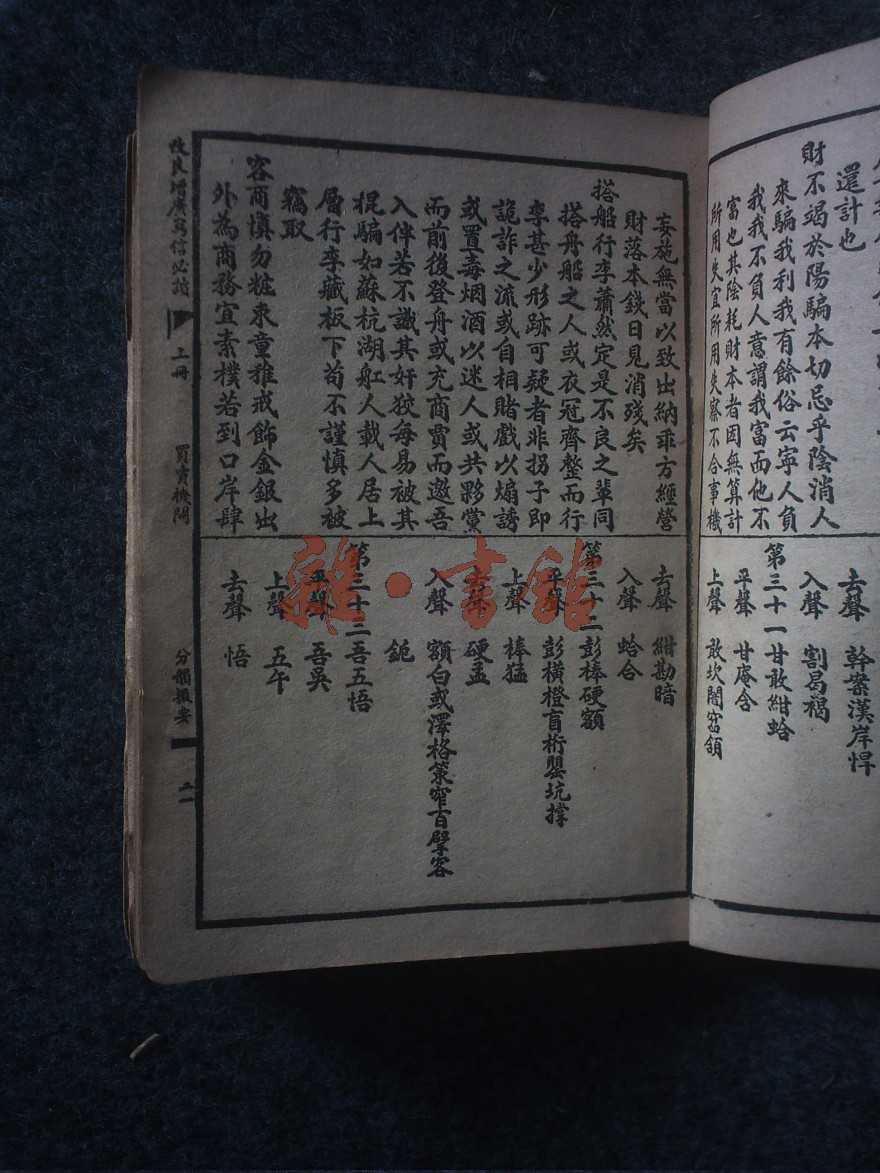 還計也
財不竭於陽騙本切忌乎陰消人
來騙我利我有餘俗云寧人負
我我不負人意謂我富而他不
富也其陰耗財本者因無算計
所用失宜所用失察不合事機
去聲　幹案漢岸悍
入聲　割曷褐
第三十一甘敢紺蛤
平聲　甘庵含
上聲　敢坎闇窞頷
妄施無當以致出納乖方經營
財落本錢日見消殘矣
搭船行李蕭然定是不良之輩同
搭舟船之人或衣冠齊整而行
李甚少形跡可疑者非拐子即
詭詐之流或自相賭戲以煽誘
或置毒烟酒以迷人或共夥黨
而前後登舟或充商賈而邀吾
入伴若不識其奸狡每易被其
棍騙如蘇杭湖舡人載人居上
層行李藏板下苟不謹慎多被
竊取
容商慎勿粧束童稚戒飾金銀出
外為商務宜素樸若到口岸肆
去聲　紺勘暗
入聲　蛤合
第三十二彭棒硬額
平聲　彭橫橙盲桁罌坑撐
上聲　棒猛
去聲　硬孟
入聲　額白或澤格策窄百擘客
鈪
第三十三吾五悟
平聲　吾吳
上聲　五午
去聲　悟
改良增廣寫信必讀　上冊　買賣機關　分韻撮要
雜·書館